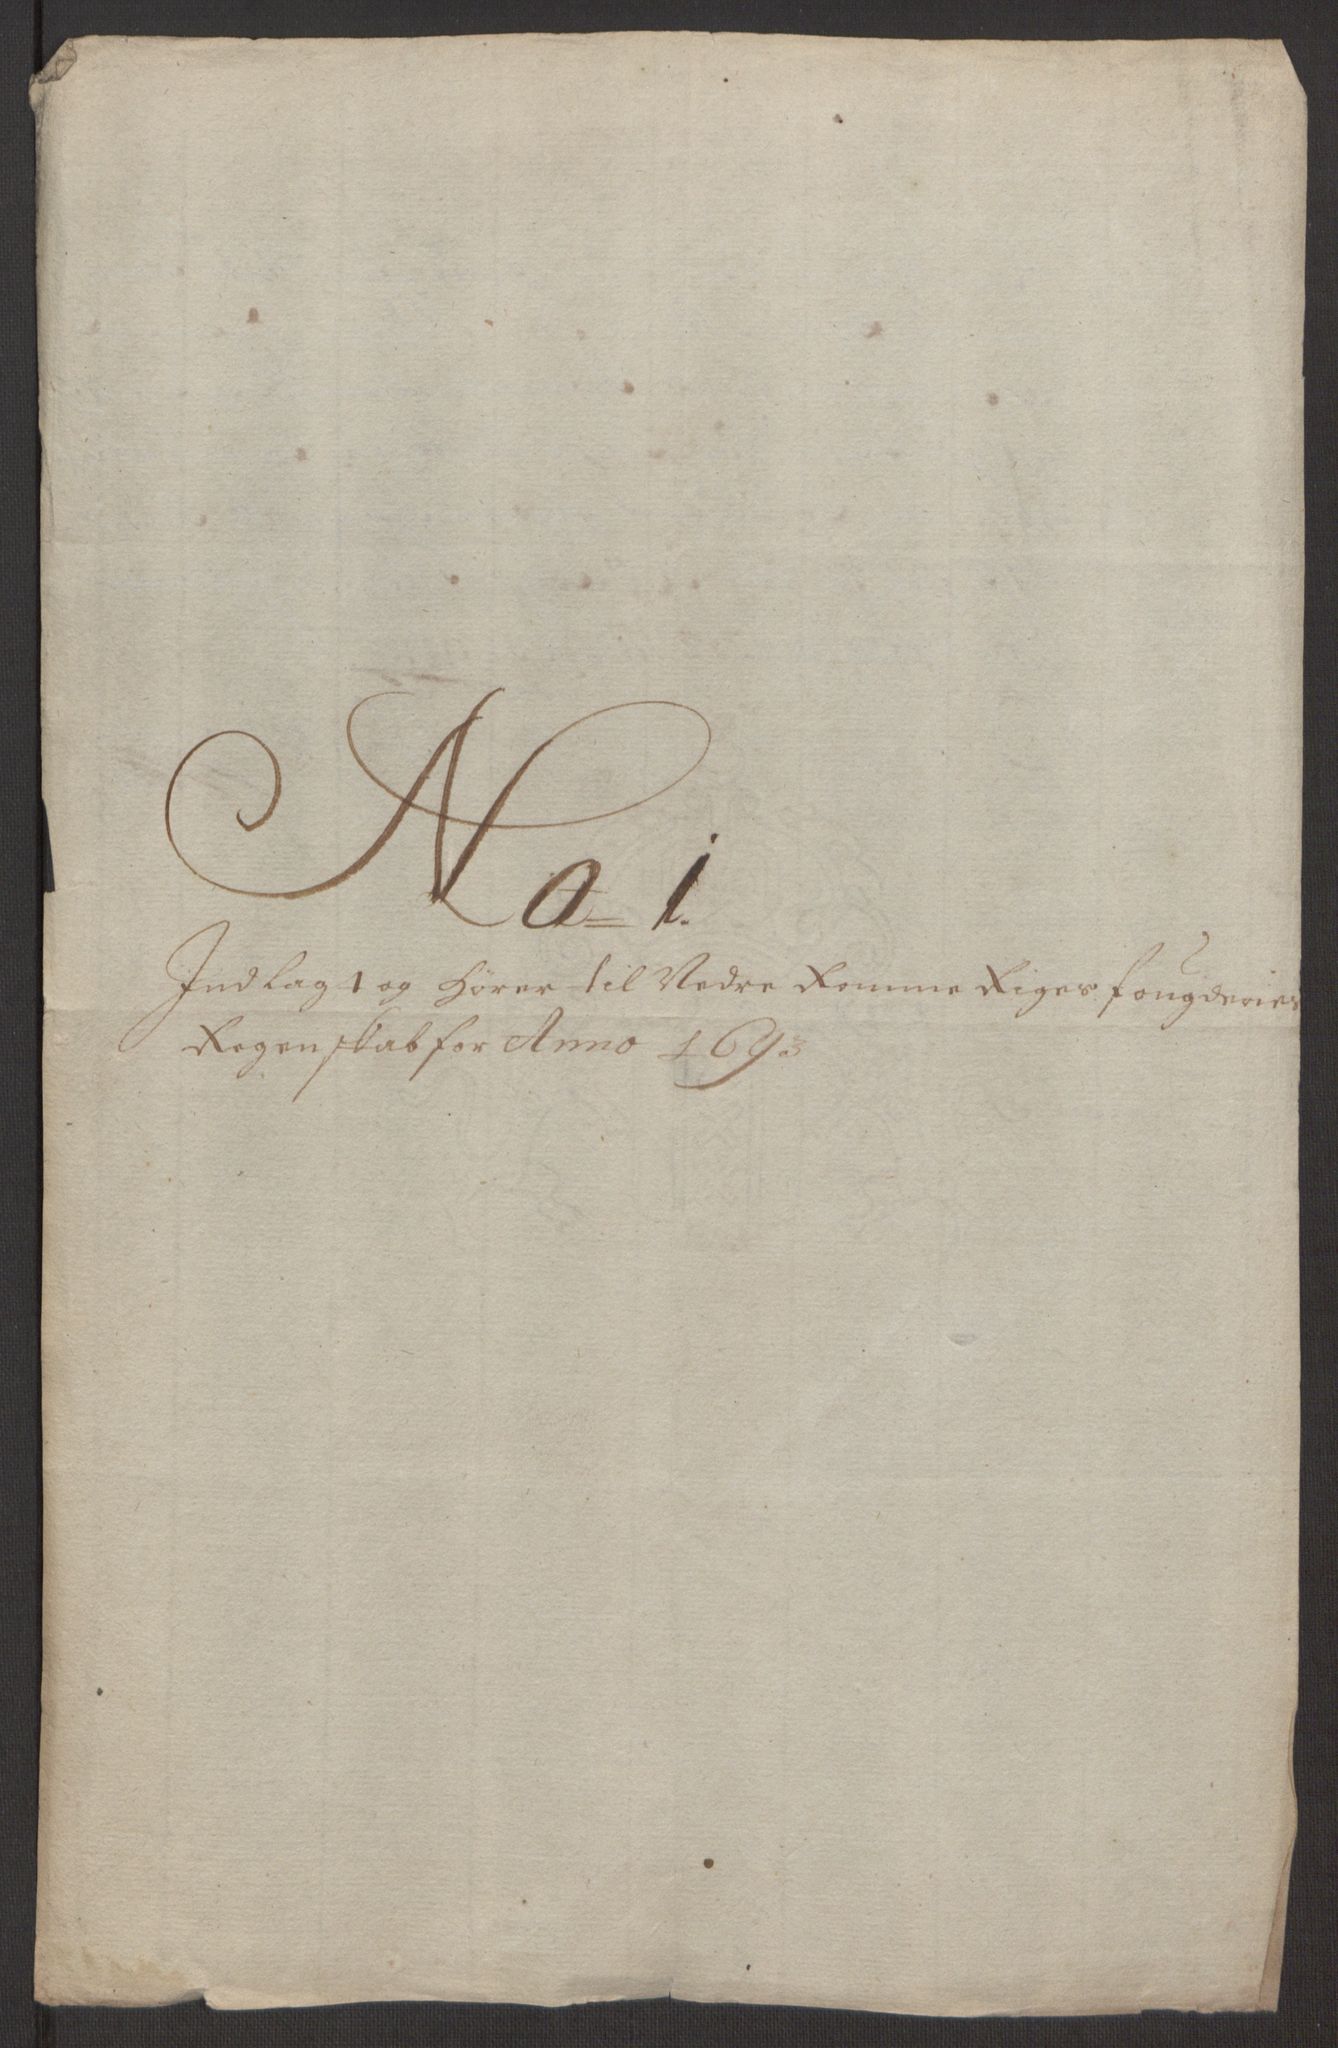 No 1.
Indlag 1 og hører til Nedre Romme Riges fougderies
Regenskab for Anno 1693